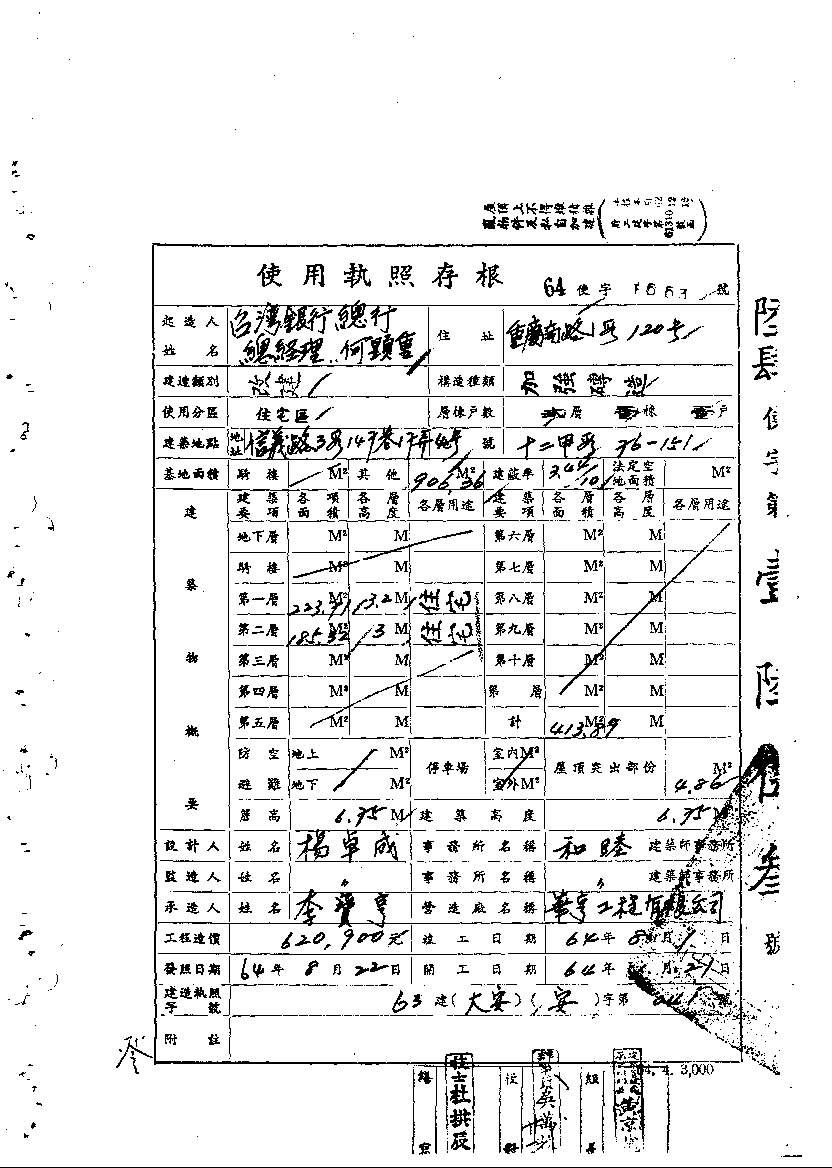 屋頂上不得堆積雜
亂物件及私自加建
使用執照存根
64 使字 1663 號
起造人姓名 台灣銀行總行 總經理 何顯重 住址 重慶南路1段120号
建造類別 改建 構造種類 加強磚造
使用分區 住宅區 層棟戶數 層 棟 戶
建築地點 地址 信義路3段147巷17弄4号 號 十二甲段 76-151
基地面積 騎樓 M² 其他 906.36 M² 建蔽率 3.44/10 法定空地面積 M²
建築物概要
建築要項 各項面積 各層高度 各層用途 建築要項 各層面積 各層高度 各層用途
地下層 M² M 第六層 M² M
騎樓 M² M 第七層 M² M
第一層 223.91 M² 3.2 M 住宅 第八層 M² M
第二層 185.32 M² 3 M 住宅 第九層 M² M
第三層 M² M 第十層 M² M
第四層 M² M 第 層 M² M
第五層 M² M 計 413.89 M² M
防空避難 地上 M² 停車場 室內 M² 屋頂突出部份 4.86 M²
地下 M² 室外 M²
簷高 6.35 M 建築高度 6.35 M
設計人 姓名 楊卓成 事務所名稱 和睦 建築師事務所
監造人 姓名 〃 事務所名稱 〃 建築師事務所
承造人 姓名 李寶亨 營造廠名稱 華亨工程有限公司
工程造價 620,900元 竣工日期 64年8月1日
發照日期 64年8月22日 開工日期 64年 月21日
建造執照字號 63建(大安)(安)字第 641 號
附註
64. 4. 3,000
陸肆使字第壹陸陸叁號
技士杜拱辰